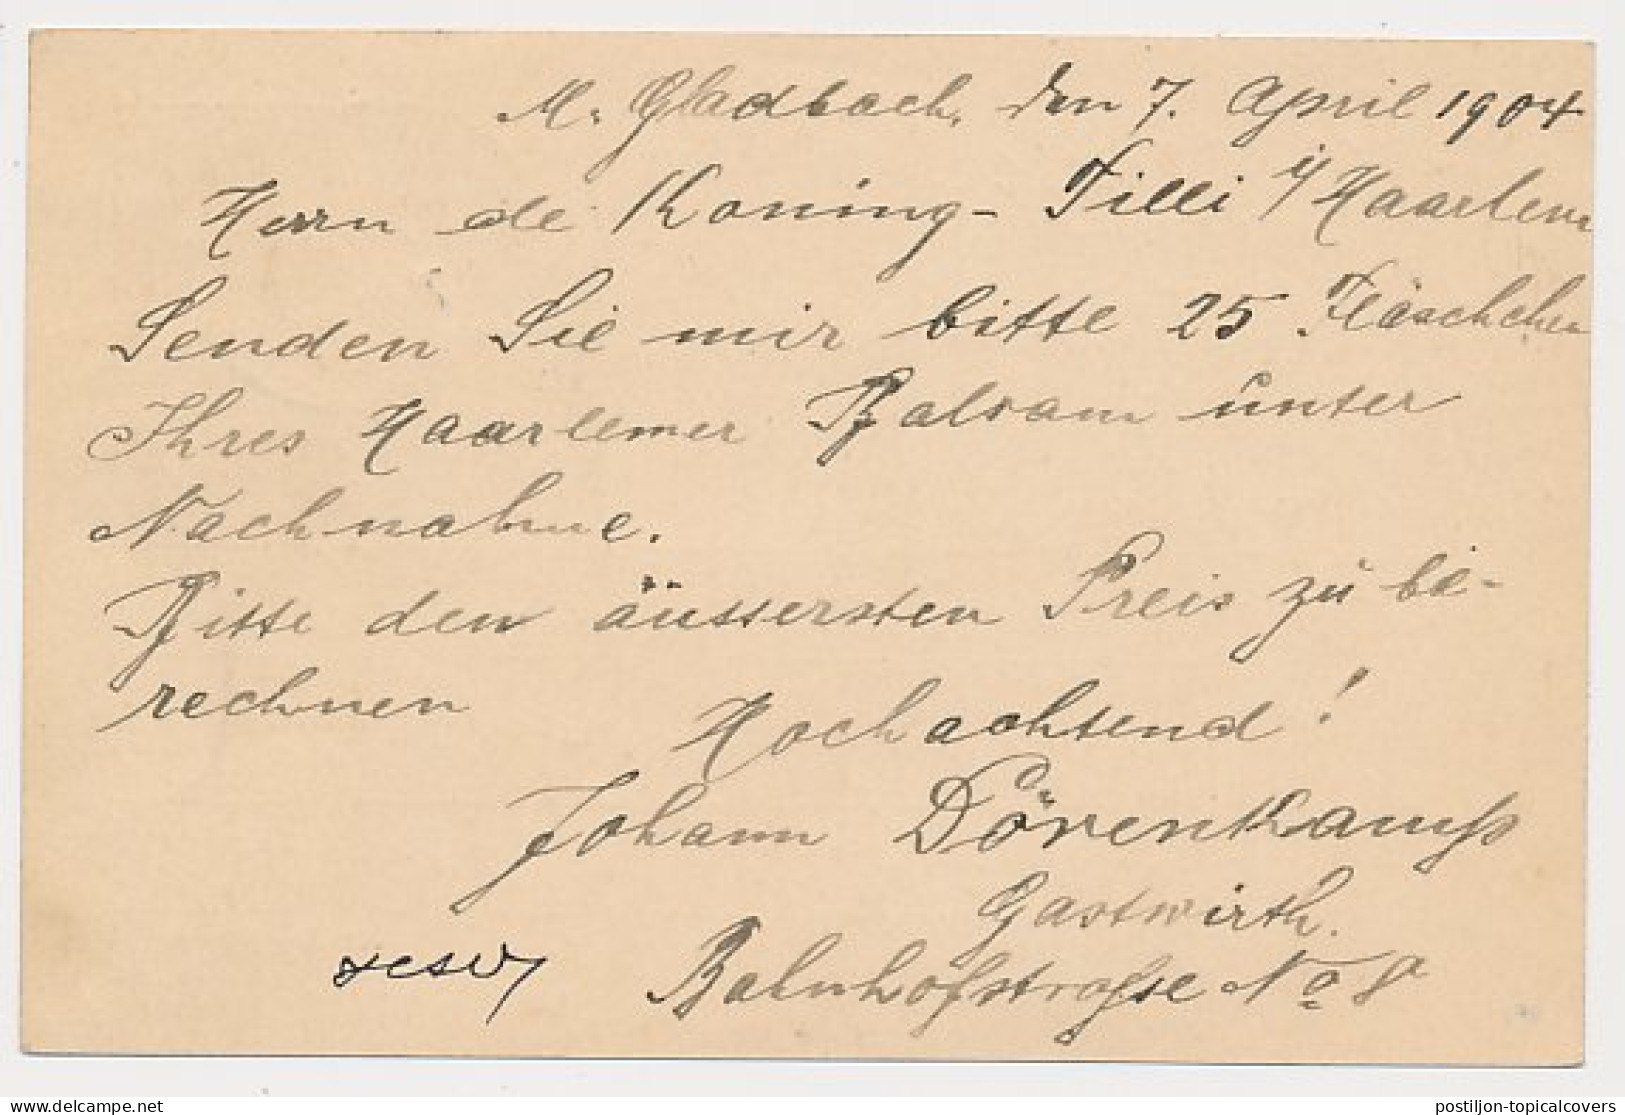 M. Gladbach, den 7. April 1904
Herrn de Koning-Tilli i/Haarlem
Senden Sie mir bitte 25 Fläschchen
Ihres Haarlemer Balsam unter
Nachnahme.
Bitte den äussersten Preis zu be-
rechnen
Hochachtend!
Johann Dörenkamp
Gastwirth.
Bahnhofstrasse No 8
postiljon-topicalcovers
delcampe.net